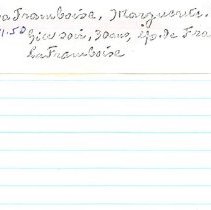 LaFramboise, Marguerite.
1.50 30 ans, ép. de Fra
LaFramboise